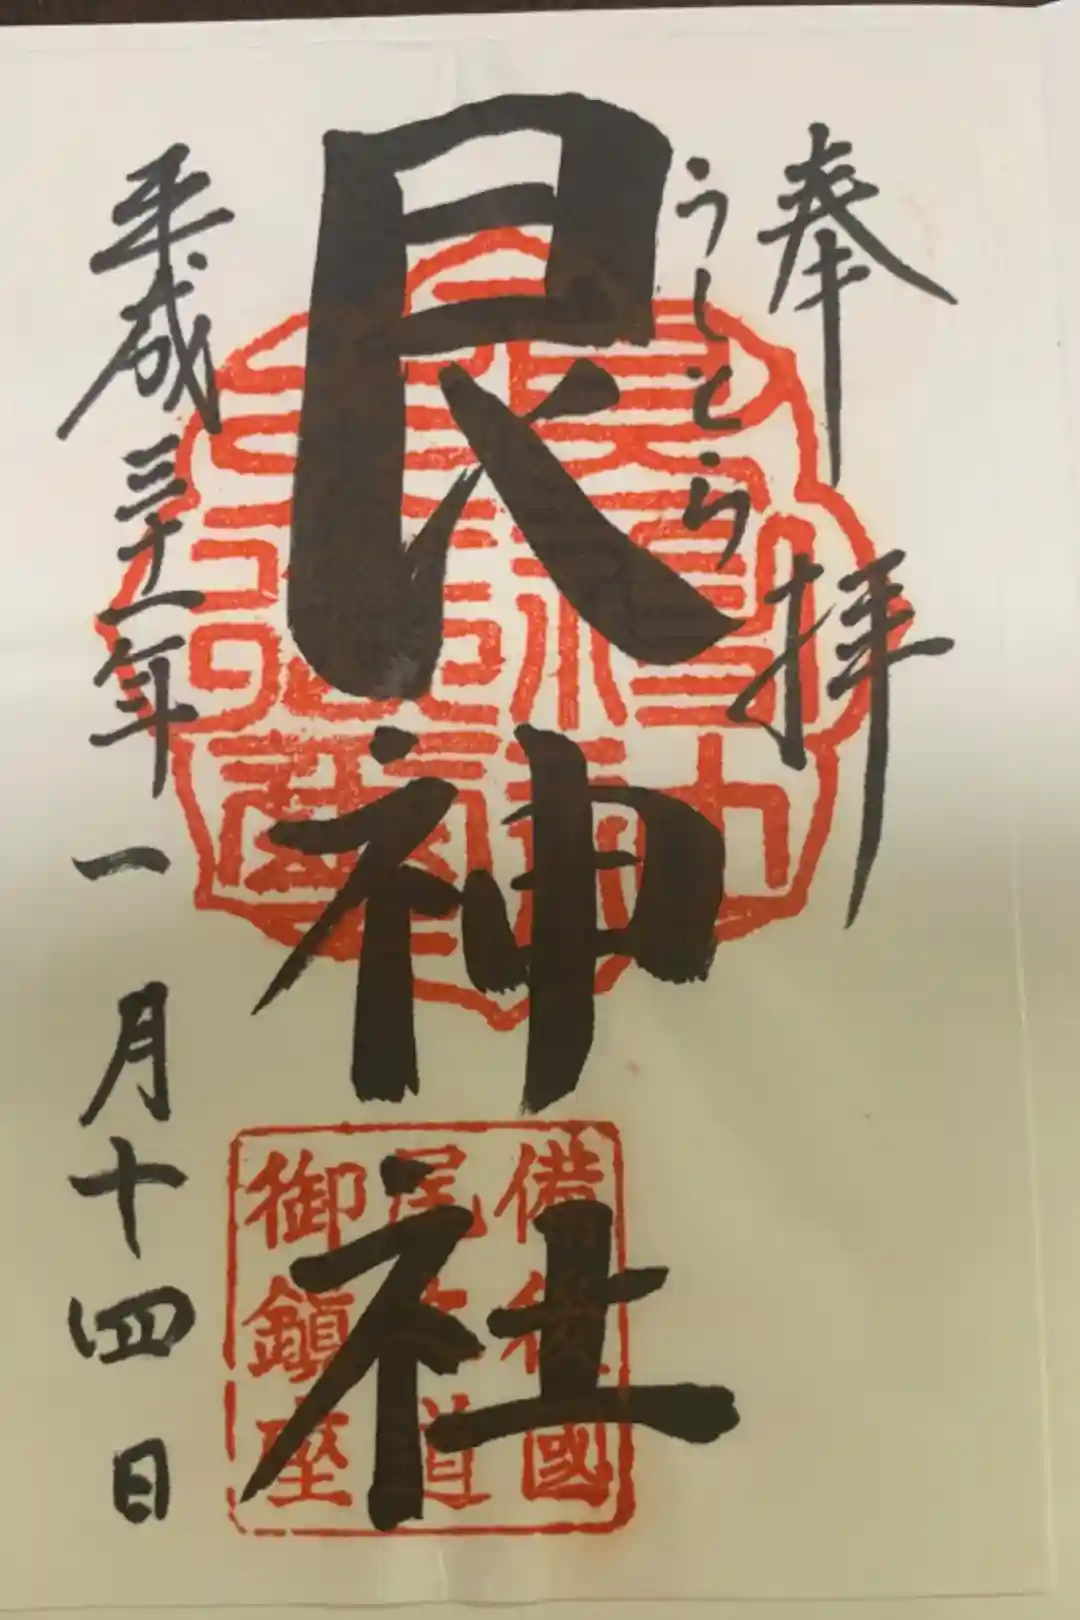 奉拝
うしとら
艮神社
平成三十一年一月十四日
備後國
尾之道
御鎮座